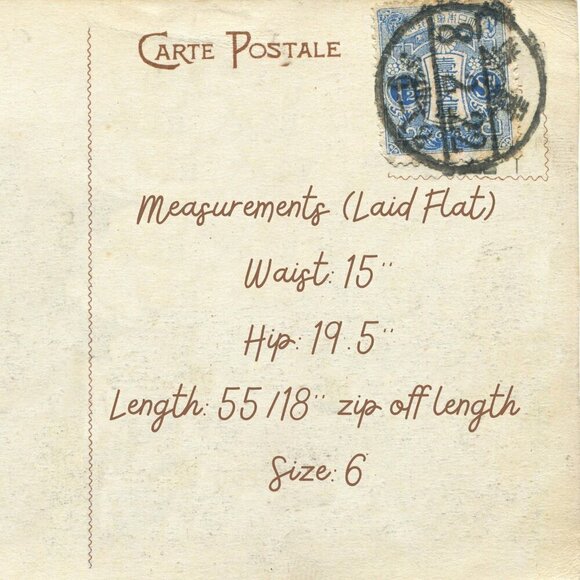 CARTE POSTALE
Measurements (Laid Flat)
Waist: 15''
Hip: 19.5''
Length: 55/18'' zip off length
Size: 6